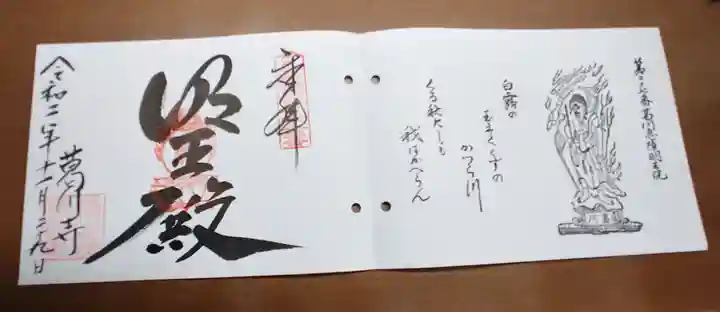 葛川息障明王院
白露の
玉まくくずの
かつら川
くる秋にしも
我はかへらん
奉拝
明王殿
葛川寺
令和二年十一月二十九日